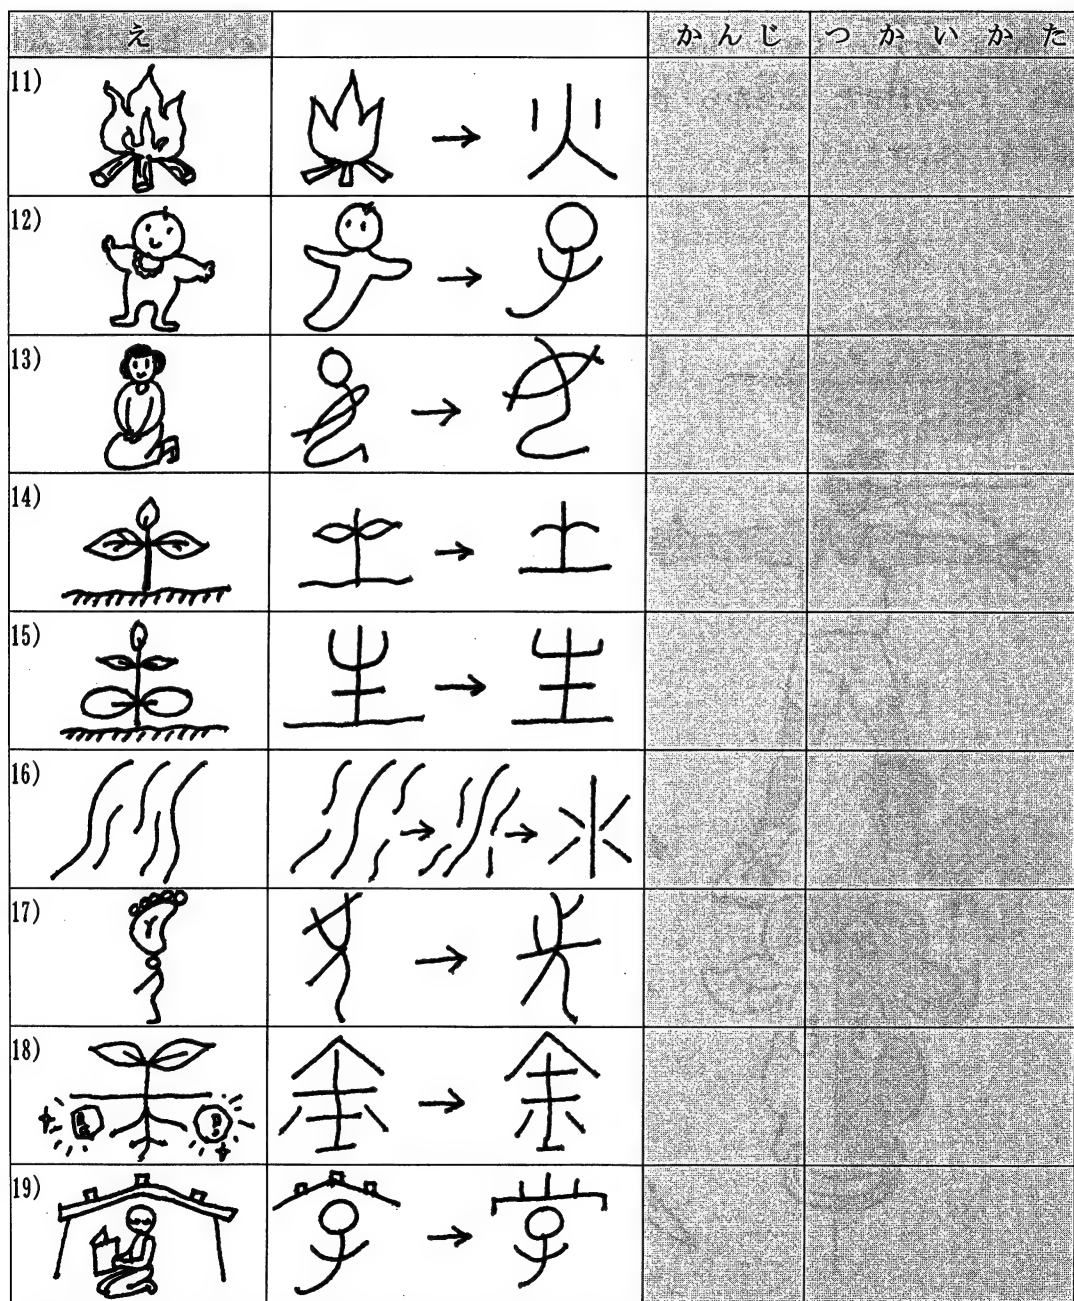 え かんじ つかいかた
11) → 火
12) →
13) →
14) → 土
15) → 生
16) → →
17) →
18) →
19) →